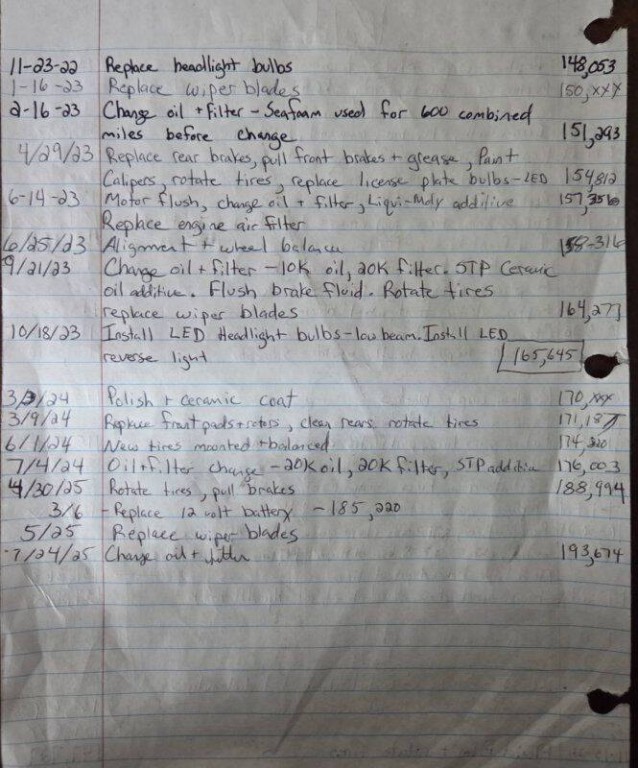 11-23-22 Replace headlight bulbs 148,053
1-16-23 Replace wiper blades 150,xxx
2-16-23 Change oil + filter - Seafoam used for 600 combined
miles before change 151,293
4/29/23 Replace rear brakes, pull front brakes + grease, Paint
Calipers, rotate tires, replace license plate bulbs-LED 154,812
6-14-23 Motor flush, change oil + filter, Liqui-Moly additive 157,356
Replace engine air filter
6/25/23 Alignment + wheel balance 158-316
9/21/23 Change oil + filter - 10K oil, 20K filter. STP Ceramic
oil additive. Flush brake fluid. Rotate tires
replace wiper blades 164,271
10/18/23 Install LED Headlight bulbs-low beam. Install LED
reverse light 165,645
24 Polish + ceramic coat 170,xxx
3/9/24 Replace front pads + rotors, clean rears, rotate tires 171,187
6/1/24 New tires mounted + balanced 174,220
7/4/24 Oil + filter change - 20K oil, 20K filter, STP additive 176,003
4/30/25 Rotate tires, pull brakes 188,994
3/6 - Replace 12 volt battery - 185,220
5/25 Replace wiper blades
7/24/25 Change oil + filter 193,674